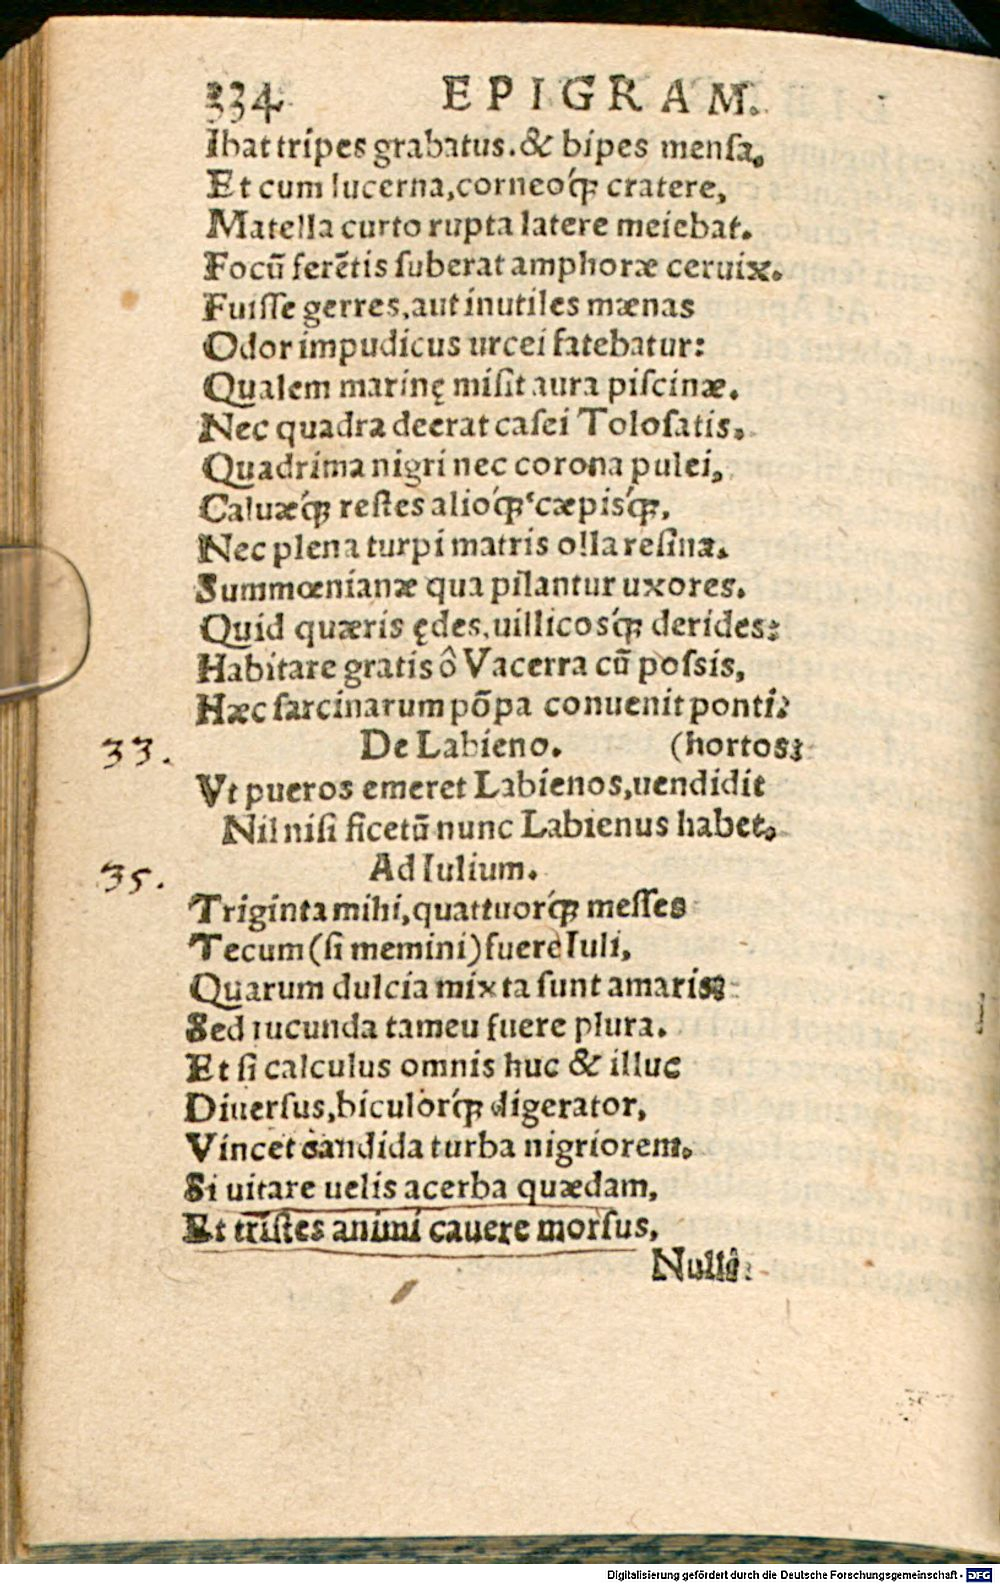 334 EPIGRAM.
Ibat tripes grabatus. & bipes mensa,
Et cum lucerna, corneoq́ꝫ cratere,
Matella curto rupta latere meiebat.
Focũ ferẽtis suberat amphoræ ceruix.
Fuisse gerres, aut inutiles mænas
Odor impudicus urcei fatebatur:
Qualem marinę misit aura piscinæ.
Nec quadra deerat casei Tolosatis,
Quadrima nigri nec corona pulei,
Caluæq́ꝫ restes alioq́ꝫ cæpisq́ꝫ,
Nec plena turpi matris olla resina.
Summœnianæ qua pilantur uxores.
Quid quæris ędes, uillicosq́ꝫ derides:
Habitare gratis ô Vacerra cũ possis,
Hæc sarcinarum põpa conuenit ponti?
33. De Labieno. (hortos:
Vt pueros emeret Labienos, uendidit
Nil nisi ficetũ nunc Labienus habet.
35. Ad Iulium.
Triginta mihi, quattuorq́ꝫ messes
Tecum (si memini) fuere Iuli,
Quarum dulcia mixta sunt amaris:
Sed iucunda tameu fuere plura.
Et si calculus omnis huc & illuc
Diuersus, biculorq́ꝫ digerator,
Vincet candida turba nigriorem.
Si uitare uelis acerba quædam,
Et tristes animi cauere morsus,
Nullî
Digitalisierung gefördert durch die Deutsche Forschungsgemeinschaft - DFG